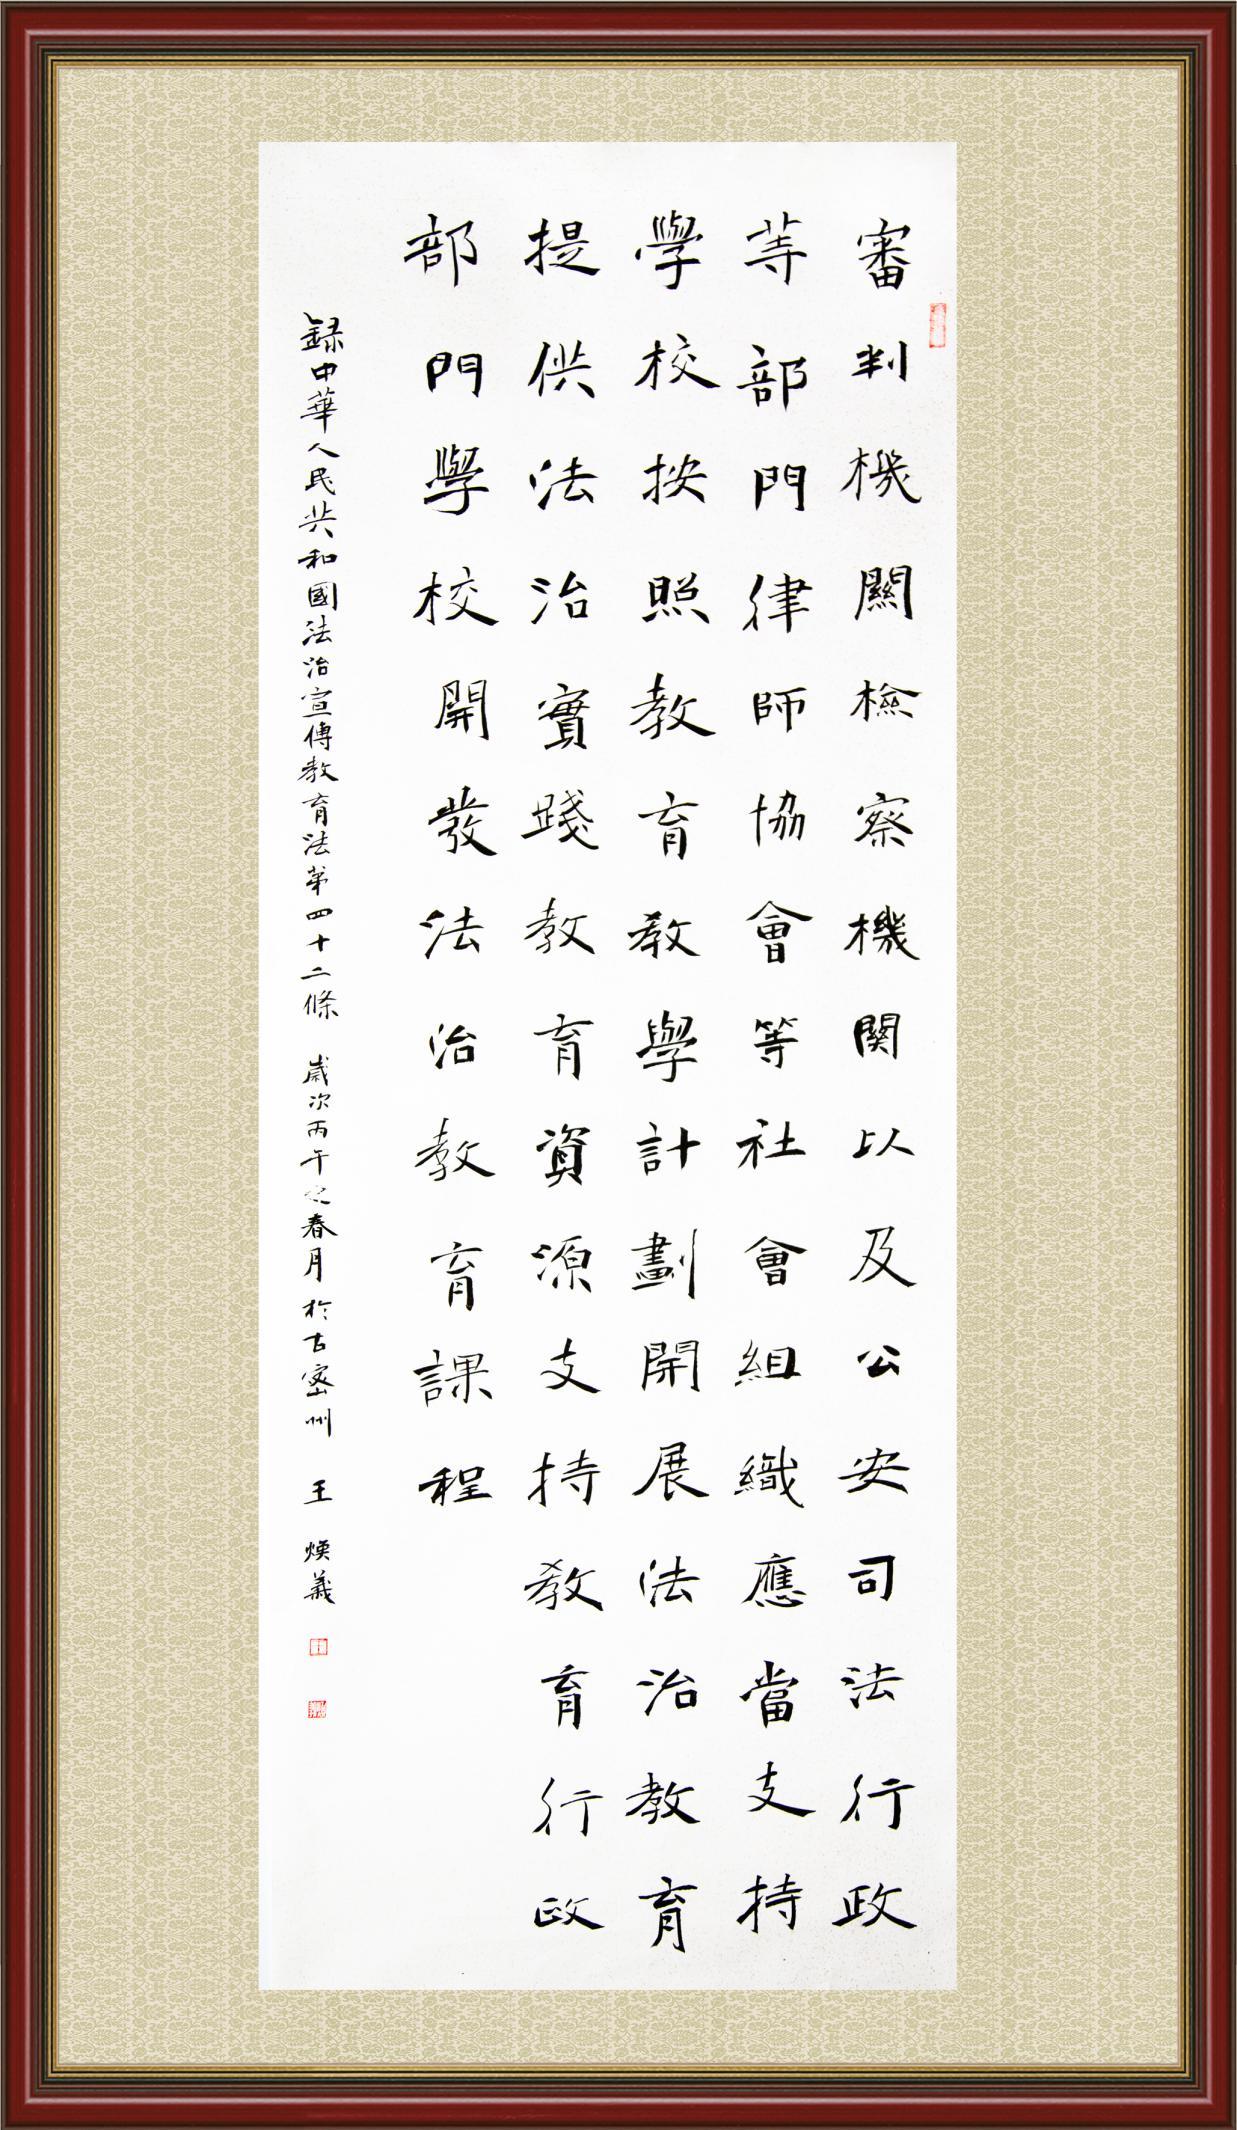 審判機關檢察機関以及公安司法行政
等部門律師協會等社會組織應當支持
學校按照教育教學計劃開展法治教育
提供法治實踐教育資源支持教育行政
部門學校開發法治教育課程
録中華人民共和國法治宣傳教育法第四十二條 歲次丙午之春月於古密州 王煥義